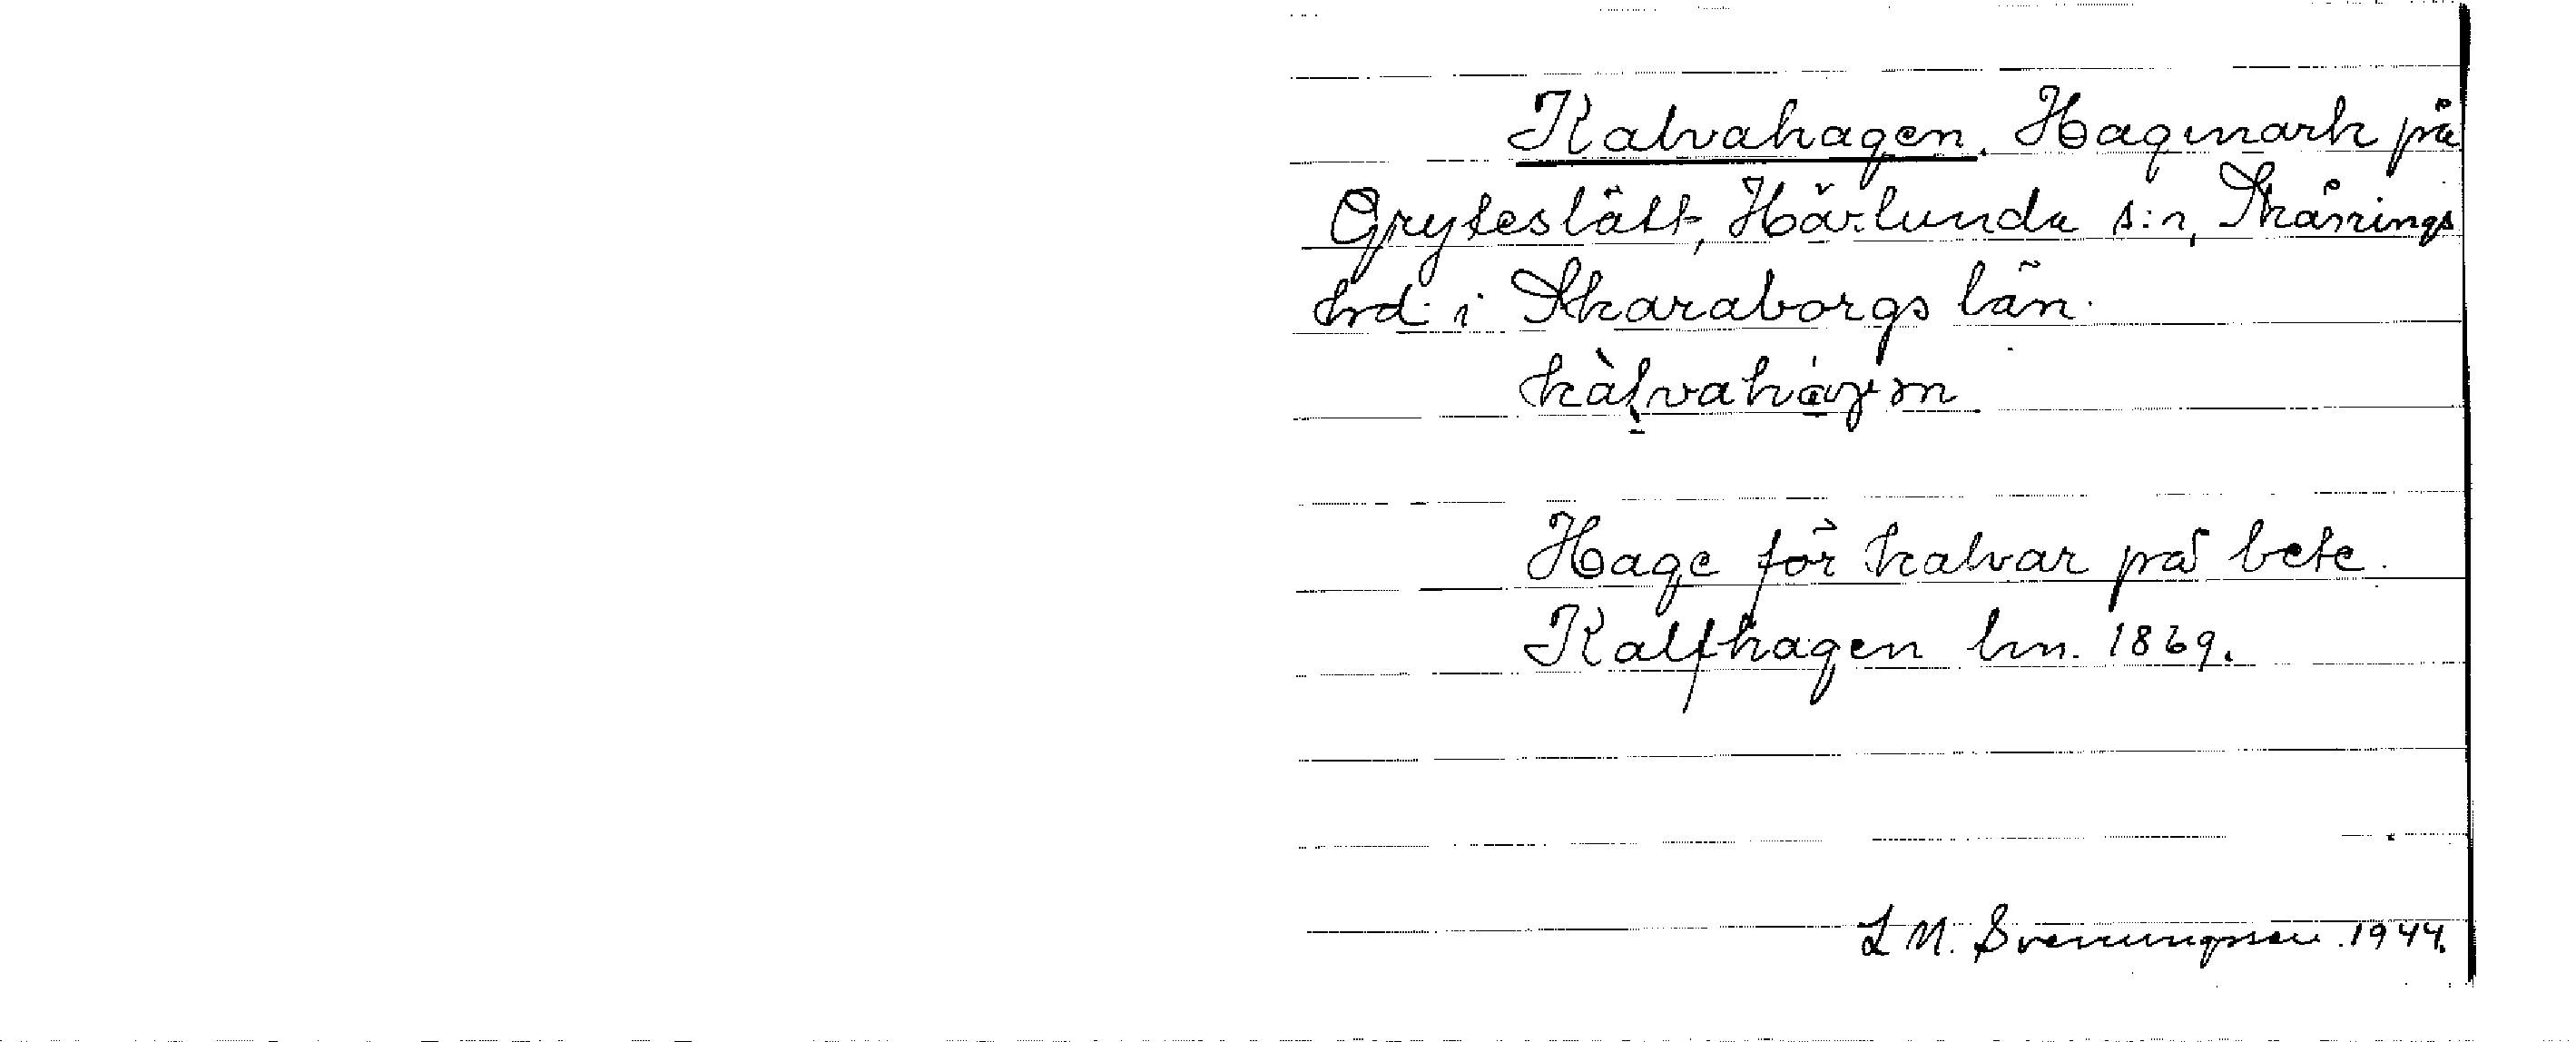 Kalvahagen. Hagmark på
Gryteslätt, Härlunda s:n, Skånings
hrd i Skaraborgs län.
kàlvahágen
Hage för kalvar på bete.
Kalfhagen lm. 1869.
L M. Svenungsson 1944.